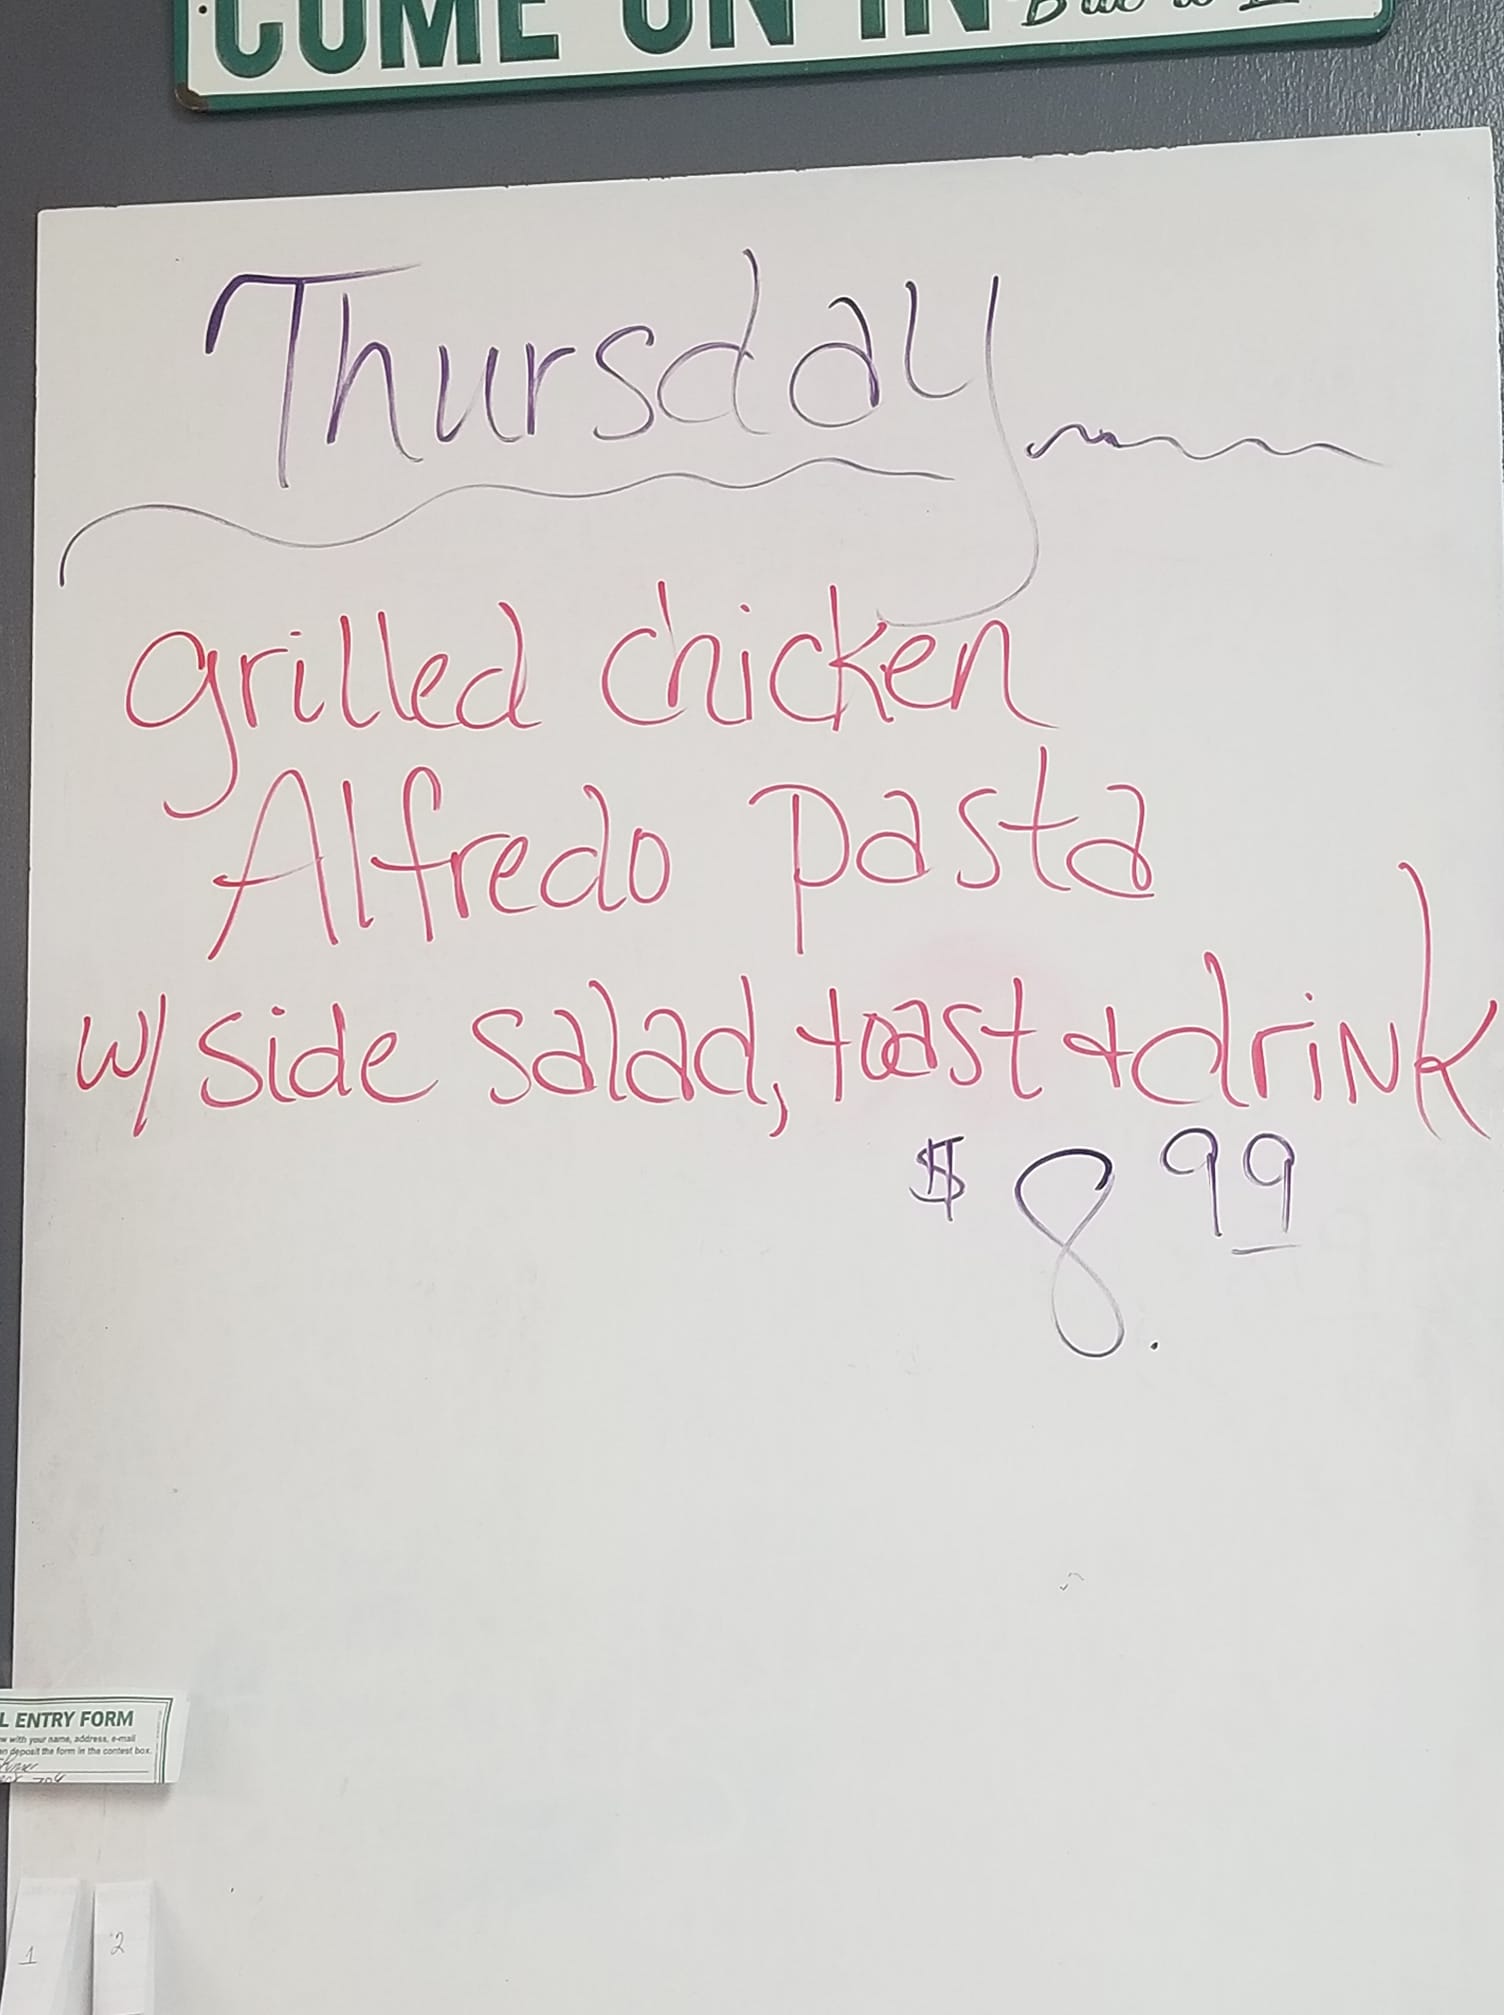 COME ON IN
Thursday
grilled chicken
Alfredo pasta
w/ side salad, toast + drink
$8.99
L ENTRY FORM
w with your name, address, e-mail
n deposit the form in the contest box.
1
2